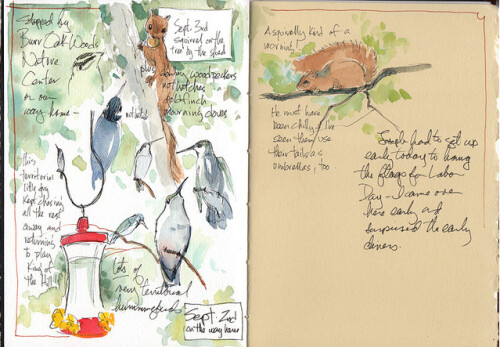 Stopped by
Burr Oak Woods
Nature
Center
on our
way home -
Sept. 3rd
squirrel on the
tree by the shed
plus
downy woodpeckers
nuthatches
goldfinch
mourning doves
this
territorial
little guy
kept chasing
all the rest
away and
returning
to play
King of
the Hill!
Lots of
very territorial
hummingbirds
Sept. 2nd
on the way home
A squirrelly kind of a
morning
He must have
been chilly - I've
seen them use
their tails as
umbrellas, too.
Joseph had to get up
early today to hang
the flags for Labor
Day - I came over
here early and
surprised the early
diners.